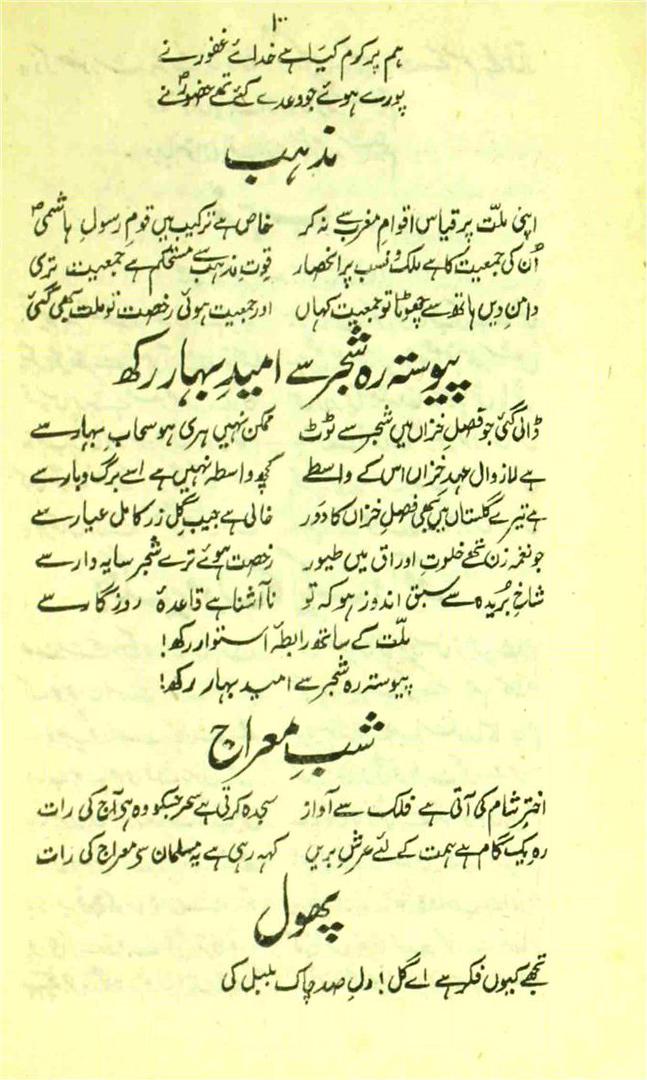 ۱۰۰
ہم پر کرم کیا ہے خدائے غفور نے
پورے ہوئے جو وعدے کئے تھے حضورؐ نے
مذہب
اپنی ملّت پر قیاس اقوامِ مغرب سے نہ کر خاص ہے ترکیب میں قومِ رسولِ ہاشمیؐ
اُن کی جمعیت کا ہے ملک و نسب پر انحصار قوتِ مذہب سے مستحکم ہے جمعیت تری
دامنِ دیں ہاتھ سے چھوٹا تو جمعیت کہاں اور جمعیت ہوئی رخصت تو ملت بھی گئی
پیوستہ رہ شجر سے امیدِ بہار رکھ
ڈالی گئی جو فصلِ خزاں میں شجر سے ٹوٹ ممکن نہیں ہری ہو سحابِ بہار سے
ہے لازوال عہدِ خزاں اس کے واسطے کچھ واسطہ نہیں ہے اسے برگ و بار سے
ہے تیرے گلستاں میں بھی فصلِ خزاں کا دَور خالی ہے جیبِ گل زرِ کامل عیار سے
جو نغمہ زن تھے خلوتِ اوراق میں طیور رخصت ہوئے ترے شجرِ سایہ دار سے
شاخِ بُریدہ سے سبق اندوز ہو کہ تو ناآشنا ہے قاعدۂ روزگار سے
ملّت کے ساتھ رابطۂ استوار رکھ!
پیوستہ رہ شجر سے امیدِ بہار رکھ!
شبِ معراج
اخترِ شام کی آتی ہے فلک سے آواز سجدہ کرتی ہے سحر جسکو وہ ہی آج کی رات
رہ یک گام ہے ہمت کے لئے عرشِ بریں کہہ رہی ہے یہ مسلمان سے معراج کی رات
پھول
تجھے کیوں فکر ہے اے گل! دلِ صد چاکِ بلبل کی